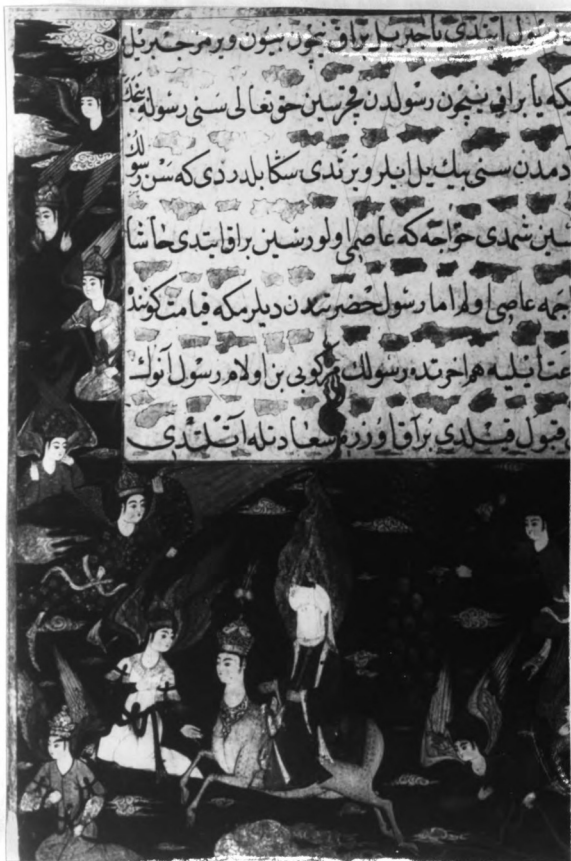 رسول ایتدی یا جبریل براق نیچون بیون ویرمز جبریل
یا براق نیچون رسولدن قچرسین حق تعالی سنی رسوله
دمدن سنی بیك یل ایلرو یرتدی سكا بلدردی كه سن رسولك
سین شمدی خواجه كه عاصی اولورسین براق ایتدی حاشا
عاصی اولم اما رسول حضرتندن دیلرمكه قیامت كونند
عت ایلیه هم اخرتده رسولك مركوبی بن اولام رسول آنوك
قبول قیلدی براق اوزره سعادتله آتلندی